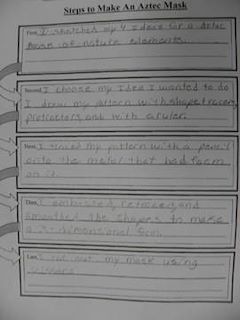 Steps to Make An Aztec Mask
First, I sketched my 4 ideas for a Aztec
mask of nature elements.
Second, I choose my Idea I wanted to do
I drew my pattern with shape tracers,
protractors, and with a ruler.
Next, I traced my pattern with a pencil
onto the metal that had foam
on it.
Then, I embossed, retraced, and
smoothed the shapes to make
a 3-dimensional form.
Last, I cut out my mask using
scissors.